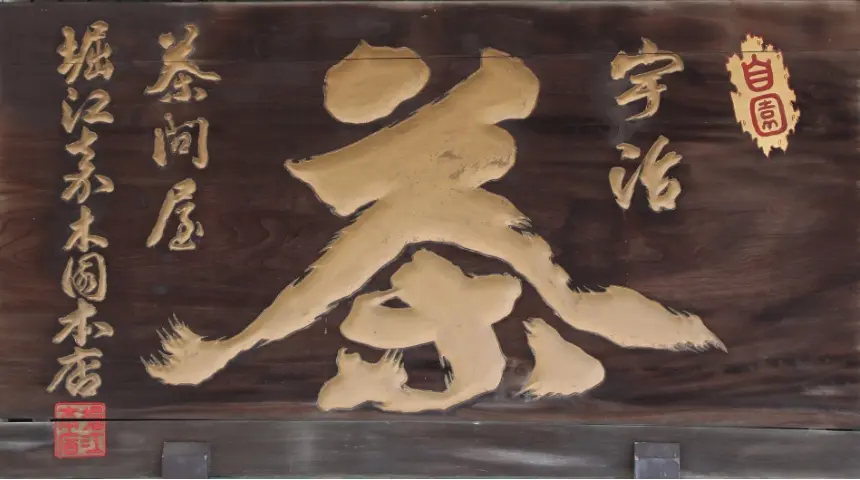 自園
宇治
茶
茶問屋
堀江嘉木園本店